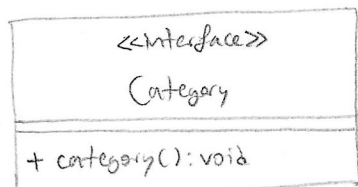 <<interface>>
Category
+ category(): void